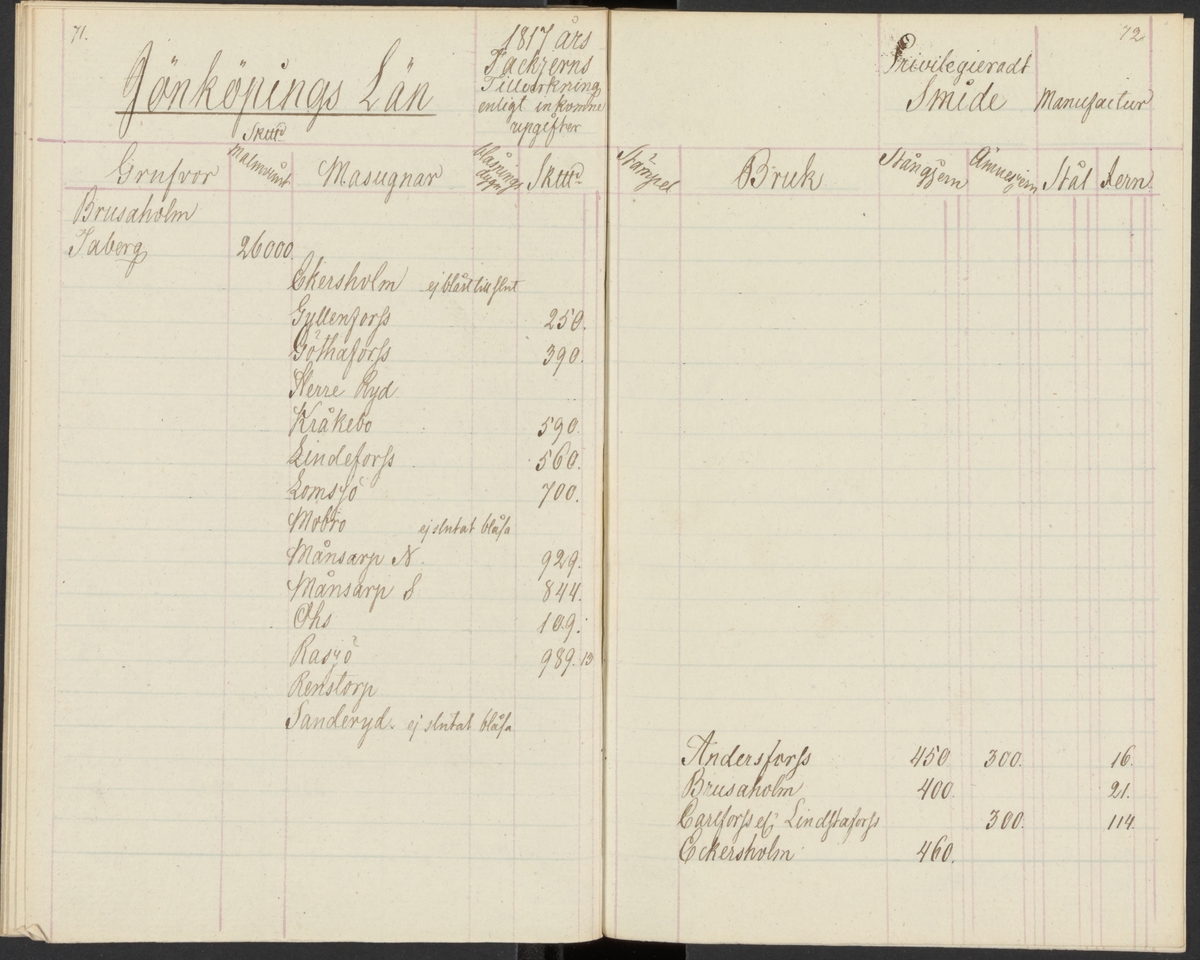 71.
Jönköpings Län
1817 års
Tackjerns
Tillverkning
enligt inkomne
upgifter
Grufvor
Skttd
Malmvärt
Masugnar
Blåsnings
dygn
Skttd
Brusaholm
Taberg 26000.
Ekersholm ej blåst till slut
Gyllenforss 250.
Göthaforss 390.
Herre Ryd
Kråkebo 590.
Lindeforss 560.
Lomsjö 700.
Mobro ej slutat blåsa
Månsarp N. 929.
Månsarp S 844.
Ohs 109.
Rasjö 989. 13
Renstorp
Sanderyd. ej slutat blåsa
72
Privilegieradt
Smide Manufactur
Stämpel Bruk Stångjern Ämnesjern Stål Jern
Andersforss 450 300. 16.
Brusaholm 400. 21.
Carlforss elj Lindstaforss 300. 114.
Eckersholm 460.